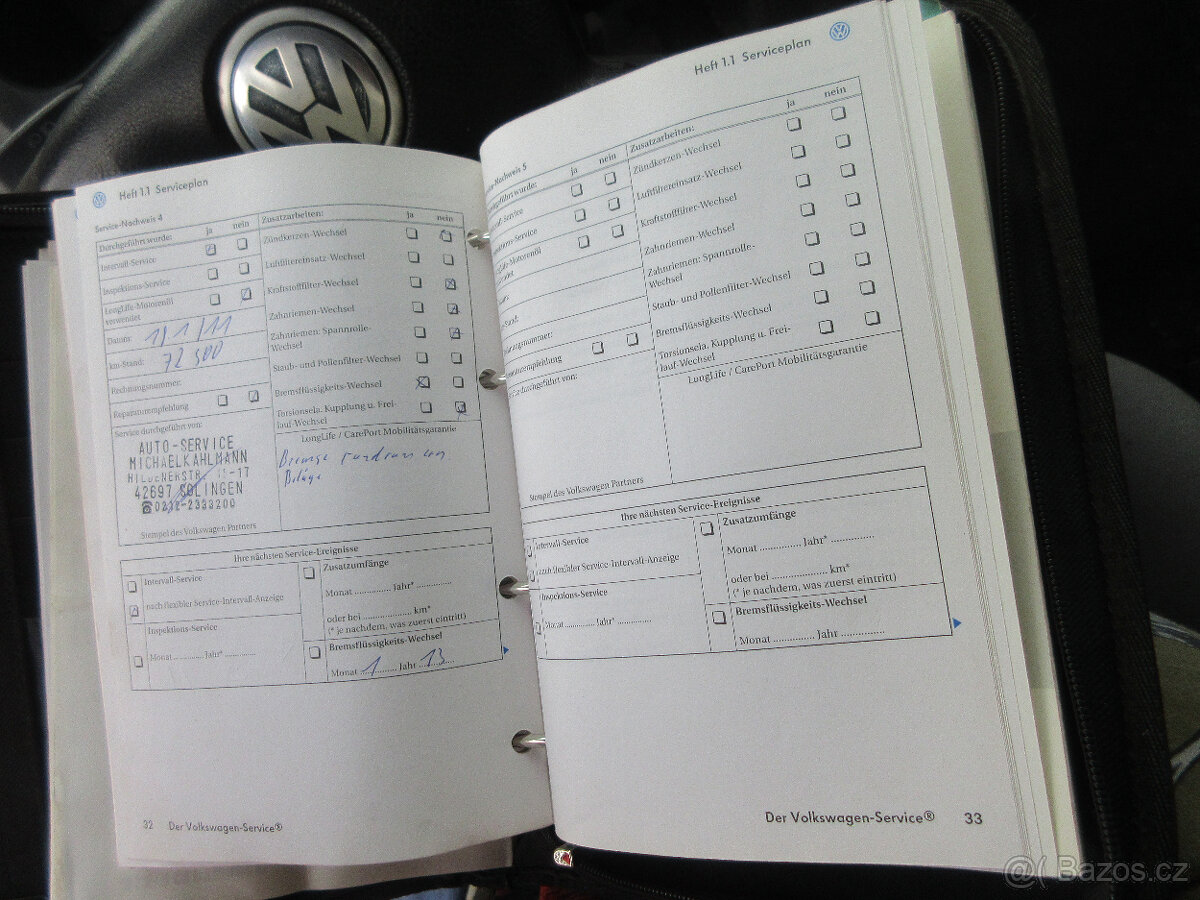 Heft 1.1 Serviceplan
Service-Nachweis 4
Durchgeführt wurde: ja nein
Intervall-Service
Inspektions-Service
LongLife-Motorenöl
verwendet
Datum: 1/1/11
km-Stand: 72 500
Rechnungsnummer:
Reparaturempfehlung
Service durchgeführt von:
AUTO-SERVICE
MICHAEL KAHLMANN
42697 SOLINGEN
☎0212-2333200
Stempel des Volkswagen Partners
Zusatzarbeiten: ja nein
Zündkerzen-Wechsel
Luftfiltereinsatz-Wechsel
Kraftstofffilter-Wechsel
Zahnriemen-Wechsel
Zahnriemen: Spannrolle-
Wechsel
Staub- und Pollenfilter-Wechsel
Bremsflüssigkeits-Wechsel
Torsionsela. Kupplung u. Frei-
lauf-Wechsel
LongLife / CarePort Mobilitätsgarantie
Bremse rundrum
Beläge
Ihre nächsten Service-Ereignisse
Intervall-Service
nach flexibler Service-Intervall-Anzeige
Inspektions-Service
Monat ............ Jahr* ............
Zusatzumfänge
Monat ............ Jahr* ............
oder bei ............ km*
(* je nachdem, was zuerst eintritt)
Bremsflüssigkeits-Wechsel
Monat 1 Jahr 13
32 Der Volkswagen-Service®
Heft 1.1 Serviceplan
-Nachweis 5
geführt wurde: ja nein
-Service
-Service
-Motorenöl
Stand:
nungsnummer:
empfehlung
durchgeführt von:
Stempel des Volkswagen Partners
Zusatzarbeiten: ja nein
Zündkerzen-Wechsel
Luftfiltereinsatz-Wechsel
Kraftstofffilter-Wechsel
Zahnriemen-Wechsel
Zahnriemen: Spannrolle-
Wechsel
Staub- und Pollenfilter-Wechsel
Bremsflüssigkeits-Wechsel
Torsionsela. Kupplung u. Frei-
lauf-Wechsel
LongLife / CarePort Mobilitätsgarantie
Ihre nächsten Service-Ereignisse
Intervall-Service
nach flexibler Service-Intervall-Anzeige
Inspektions-Service
Monat ............ Jahr* ............
Zusatzumfänge
Monat ............ Jahr* ............
oder bei ............ km*
(* je nachdem, was zuerst eintritt)
Bremsflüssigkeits-Wechsel
Monat ............ Jahr ............
Der Volkswagen-Service® 33
@( Bazos.cz